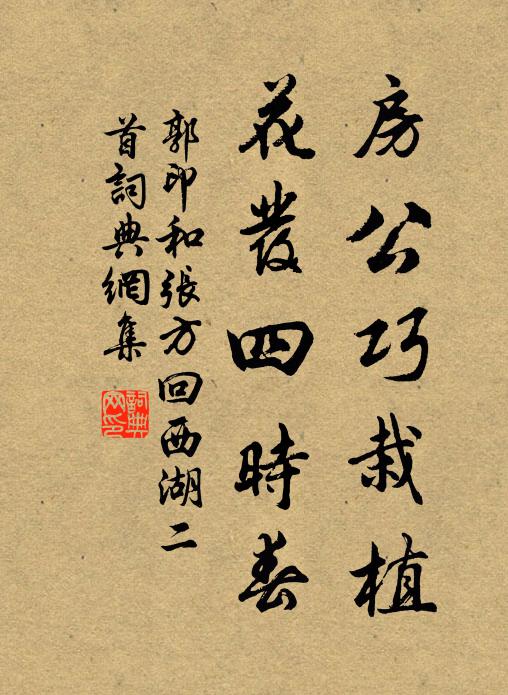 房公巧栽植
花發四時春
郭印和張方回西湖二
首詞典網集
詞典
网印